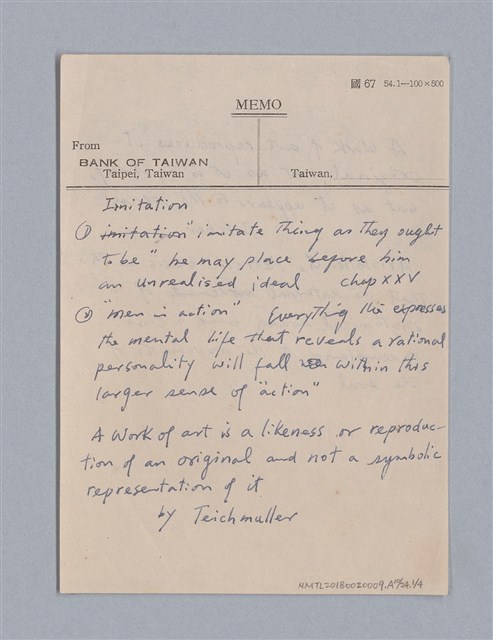 國 67 54.1—100×500
MEMO
From
BANK OF TAIWAN
Taipei, Taiwan
Taiwan,
Imitation
① imitation" imitate thing as they ought
to be" he may place before him
an unrealised ideal chap XXV
② "men in action" Everything the expresses
the mental life that reveals a rational
personality will fall within this
larger sense of "action"
A work of art is a likeness or reproduc-
tion of an original and not a symbolic
representation of it
by Teichmuller
NMTL20180020009.A